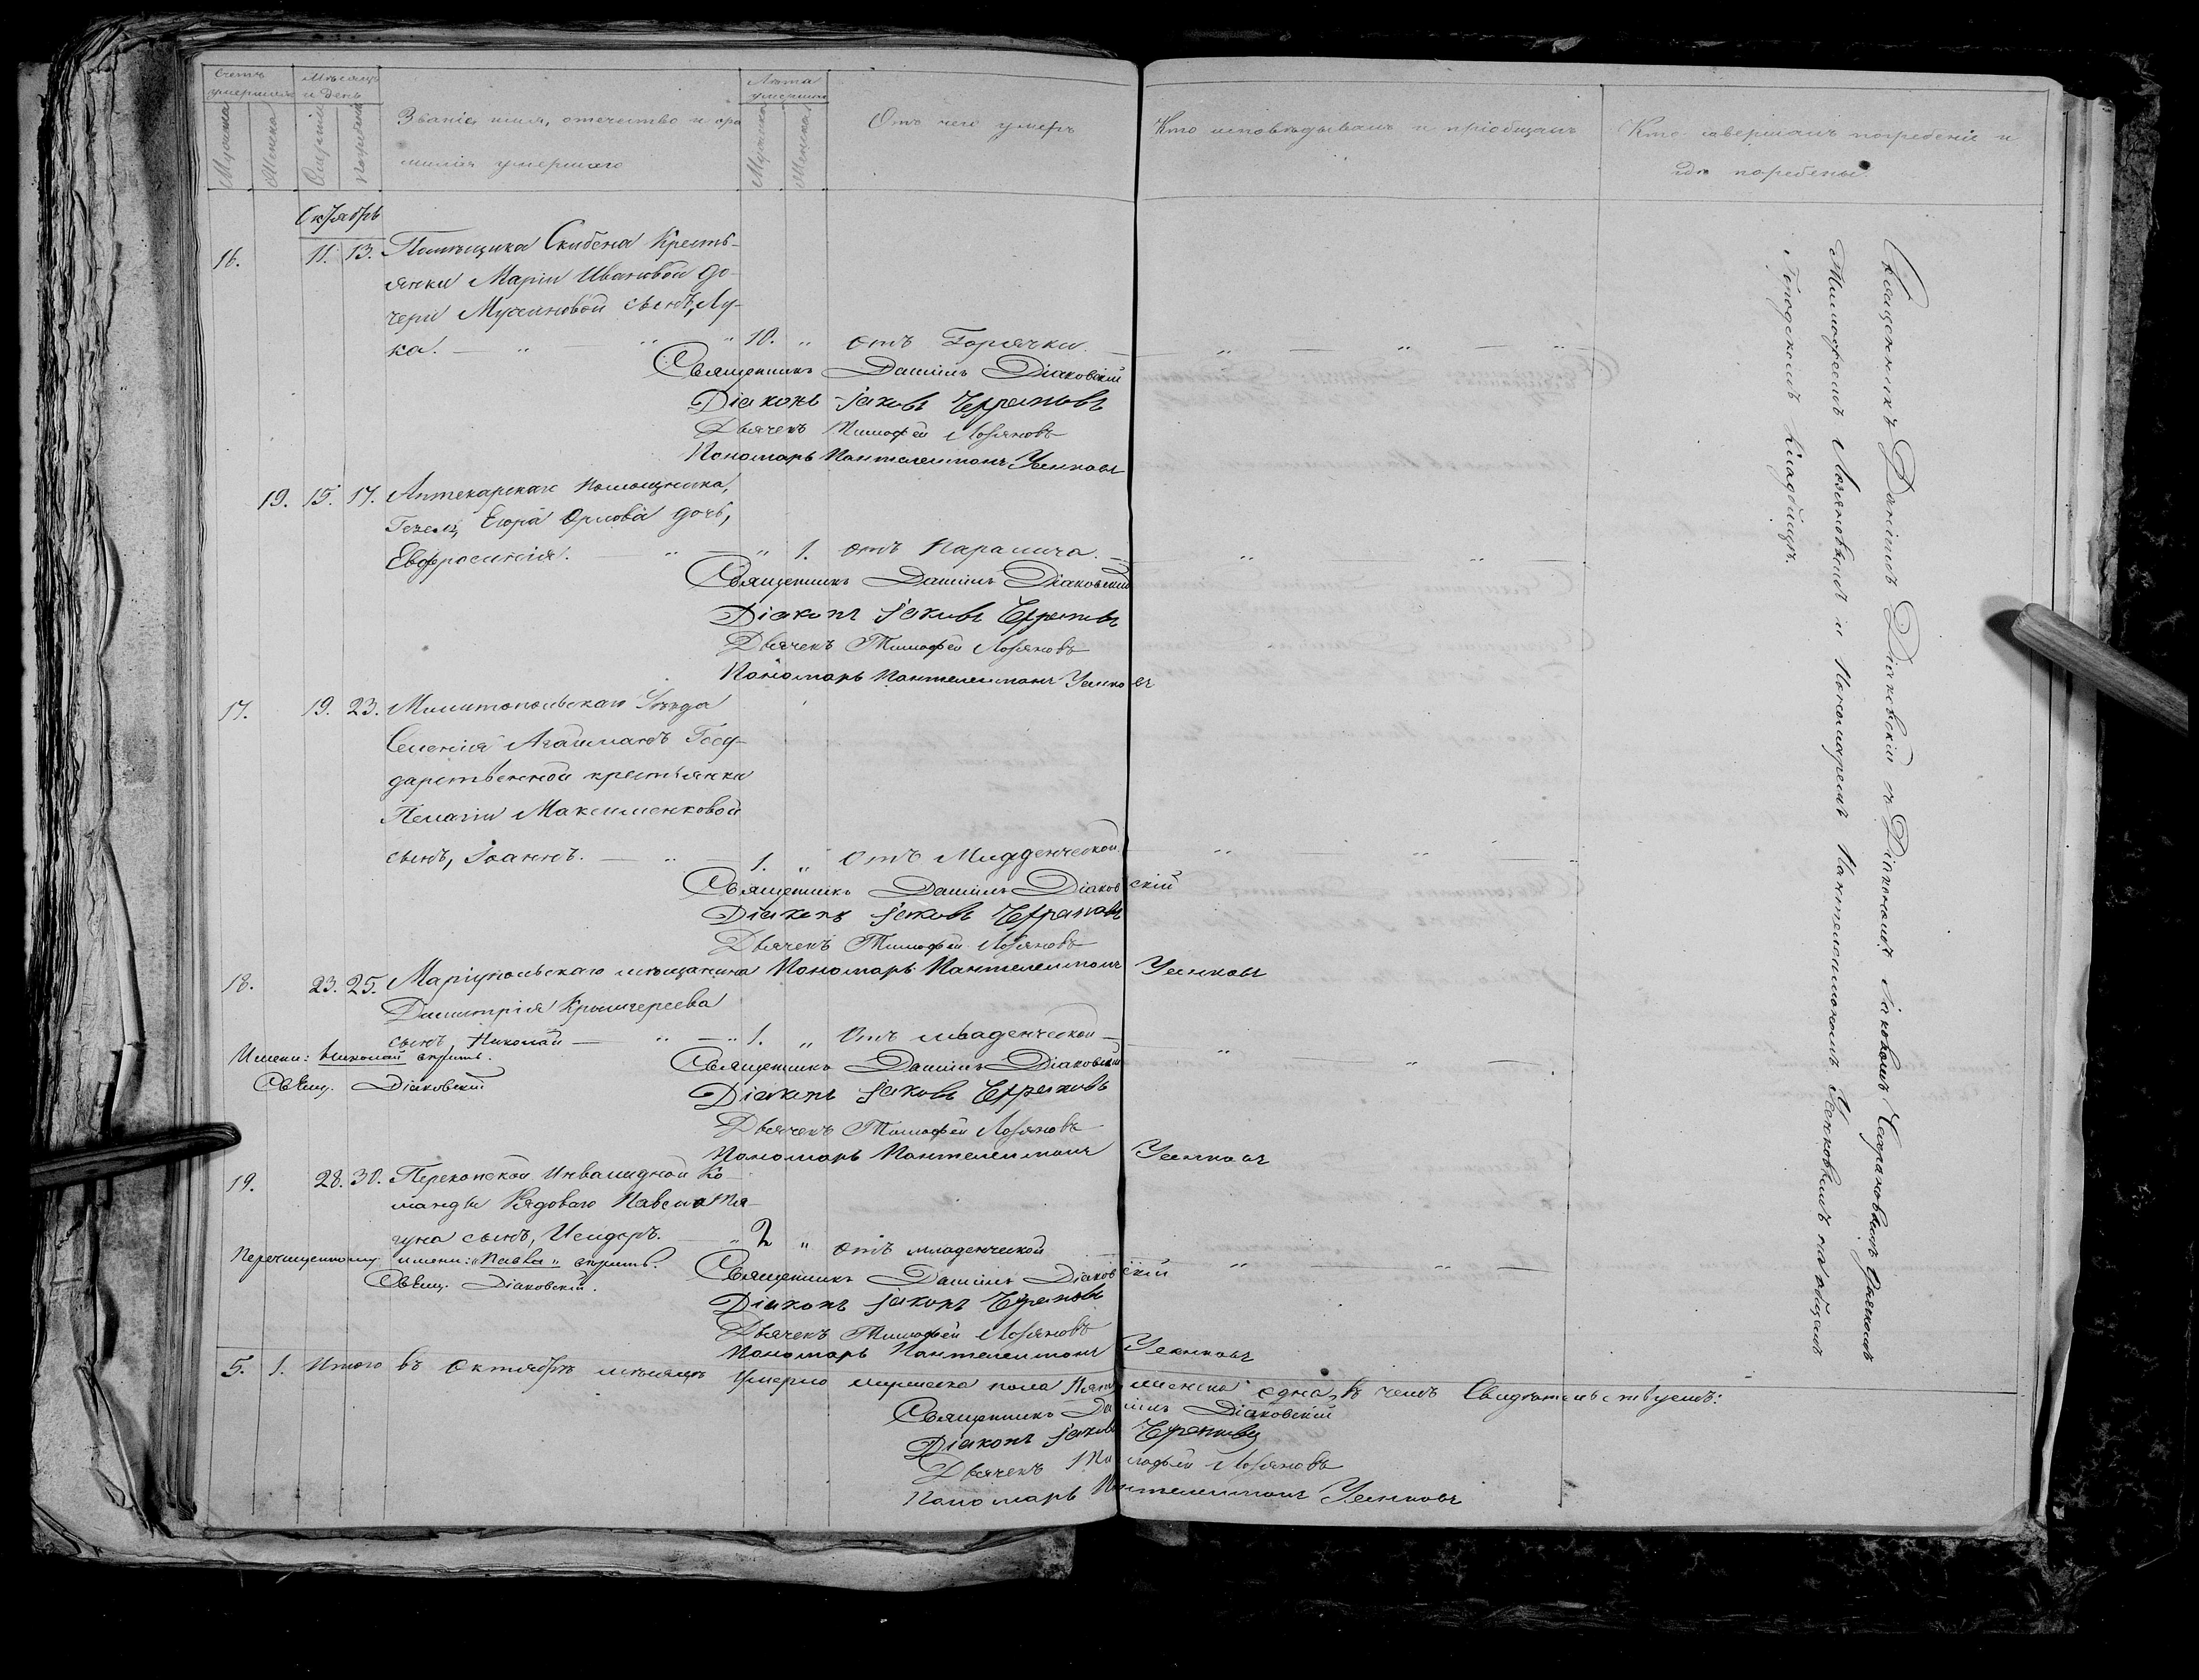 Счетъ умершихъ
Мѣсяцъ и день
Званіе, имя, отечество и фамилія умершаго
Лѣта умершаго
Отъ чего умеръ
Кто исповѣдывалъ и пріобщалъ
Кто совершалъ погребеніе и
гдѣ погребены.
Мужска
Женска
Смерти
Погребенія
Мужска
Женска
Октябрь
16. 11. 13. Помѣщика Скибена Кресть-
янки Маріи Ивановой до-
чери сынъ, Лу-
ка. — „ — „ 10. „ отъ Горячки. — „ — „ — „
Священникъ Даніилъ Діаковскій
Діаконъ Іаковъ
Дьячекъ Тимофей Лозяновъ
Пономарь Пантелеимонъ Усенковъ
19. 15. 17. Аптекарскаго помощника,
Егора Орлова дочь,
Евфросинія. — „ — „ 1. отъ Паралича. — „ — „
Священникъ Даніилъ Діаковскій
Діаконъ Іаковъ
Дьячекъ Тимофей Лозяновъ
Пономарь Пантелеимонъ Усенковъ
17. 19. 23. Мелитопольскаго Уѣзда
Селенія Агайманъ Госу-
дарственной крестьянки
Пелагіи Максименковой
сынъ, Іоаннъ. — „ — 1. „ отъ Младенческой. „ — „ — „
Священникъ Даніилъ Діаковскій
Діаконъ Іаковъ
Дьячекъ Тимофей Лозяновъ
Пономарь Пантелеимонъ Усенковъ
18. 23. 25. Маріупольскаго мѣщанина
Димитрія Крымгереева
сынъ, Николай — „ — „ 1. „ Отъ младенческой — „ — „ —
Имени: Николай вѣрить.
Свящ. Діаковскій
Священникъ Даніилъ Діаковскій
Діаконъ Іаковъ
Дьячекъ Тимофей Лозяновъ
Пономарь Пантелеимонъ Усенковъ
19. 28. 30. Перекопской Инвалидной Ко-
манды Рядоваго Павла
сынъ, Исидоръ. — „ 2 „ отъ младенческой — „ — „ —
Перечищенному имени: „Павла„ вѣрить.
Свящ. Діаковскій.
Священникъ Даніилъ Діаковскій
Діаконъ Іаковъ
Дьячекъ Тимофей Лозяновъ
Пономарь Пантелеимонъ Усенковъ
5. 1. Итого въ Октябрѣ мѣсяцѣ умерло мужеска пола пять женска одна, въ чемъ Свидѣтельствуемъ:
Священникъ Даніилъ Діаковскій
Діаконъ Іаковъ
Дьячекъ Тимофей Лозяновъ
Пономарь Пантелеимонъ Усенковъ
Священникъ Даніилъ Діаковскій съ Діакономъ Іаковомъ Дьячкомъ
Тимофеемъ Лозяновымъ и Пономаремъ Пантелеимономъ Усенковымъ на общемъ
Городскомъ кладбищѣ.